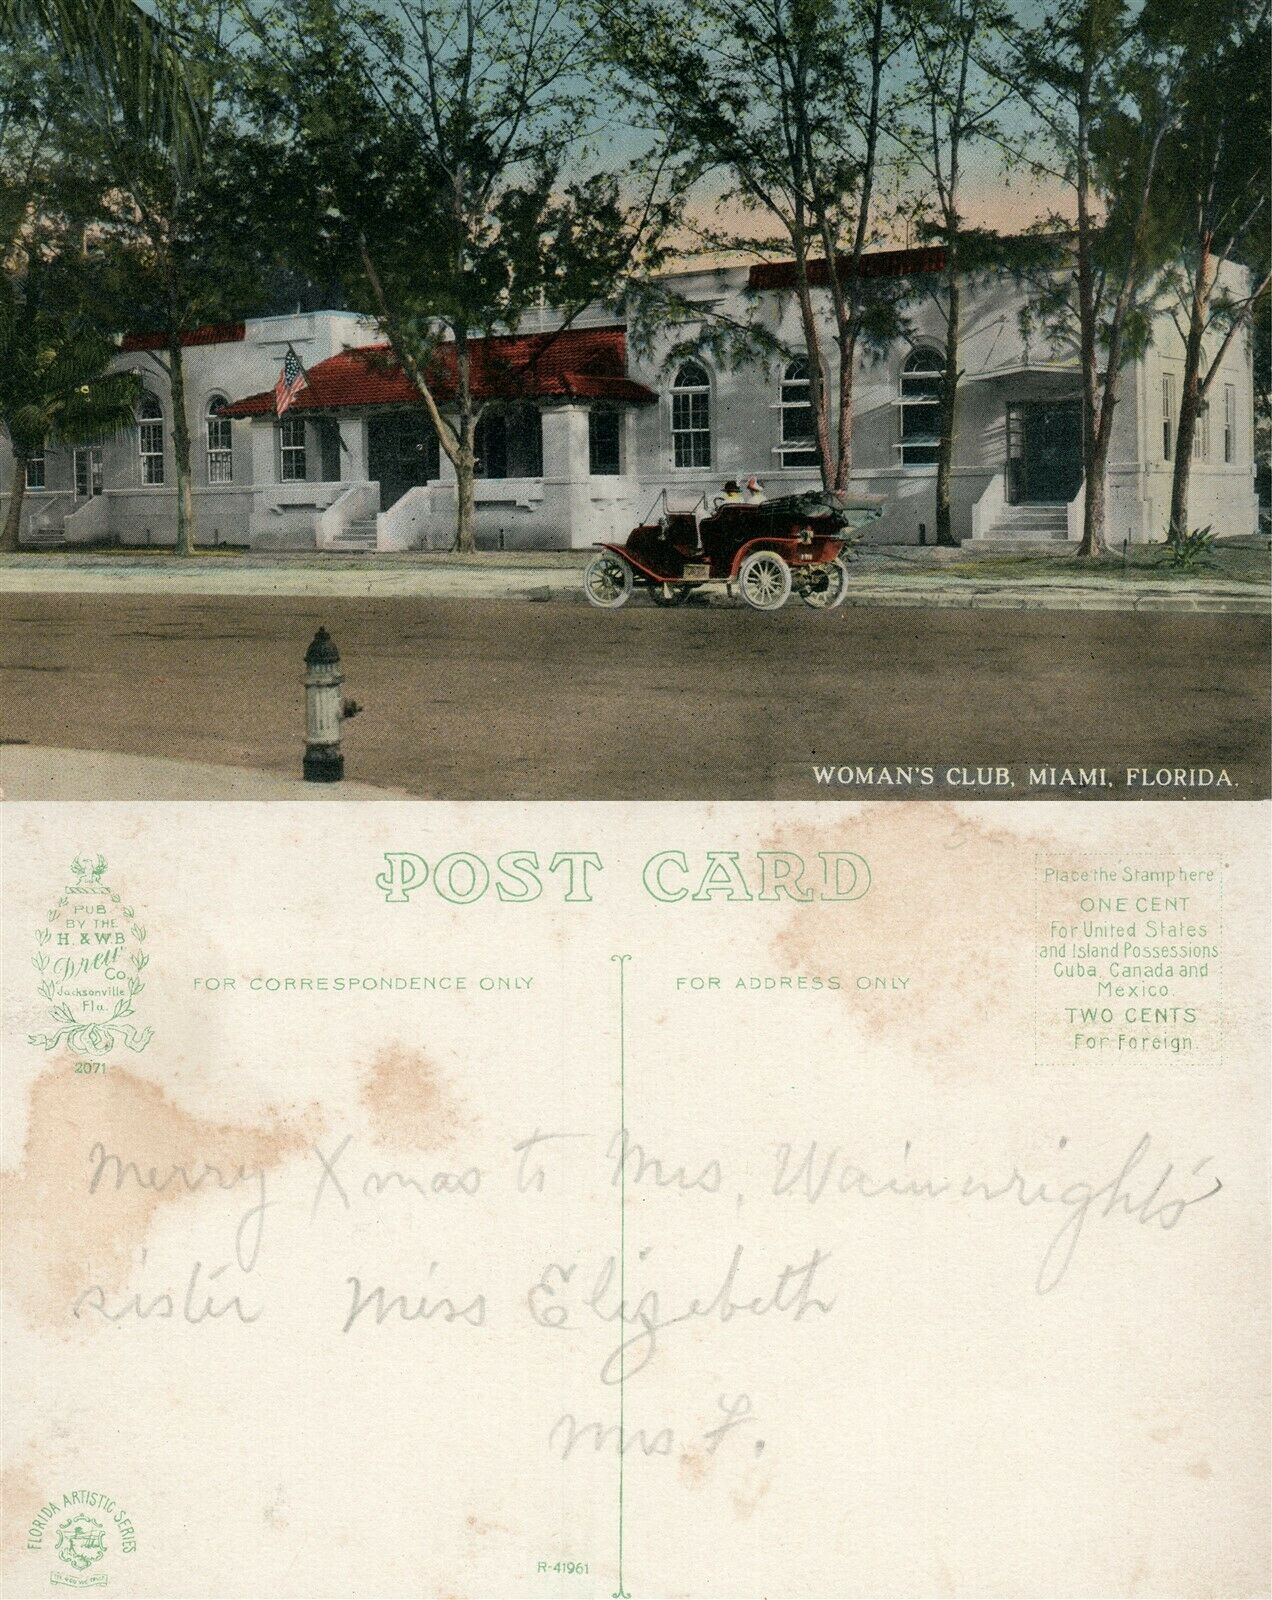 WOMAN'S CLUB, MIAMI, FLORIDA.
POST CARD
PUB.
BY THE
H. & W.B
Drew
Co.
Jacksonville
Fla.
2071
FOR CORRESPONDENCE ONLY
FOR ADDRESS ONLY
Place the Stamp here
ONE CENT
For United States
and Island Possessions
Cuba, Canada and
Mexico.
TWO CENTS
For Foreign.
Merry Xmas to Mrs. Wainwright's
sister Miss Elizabeth
Mrs F.
FLORIDA ARTISTIC SERIES
R-41961